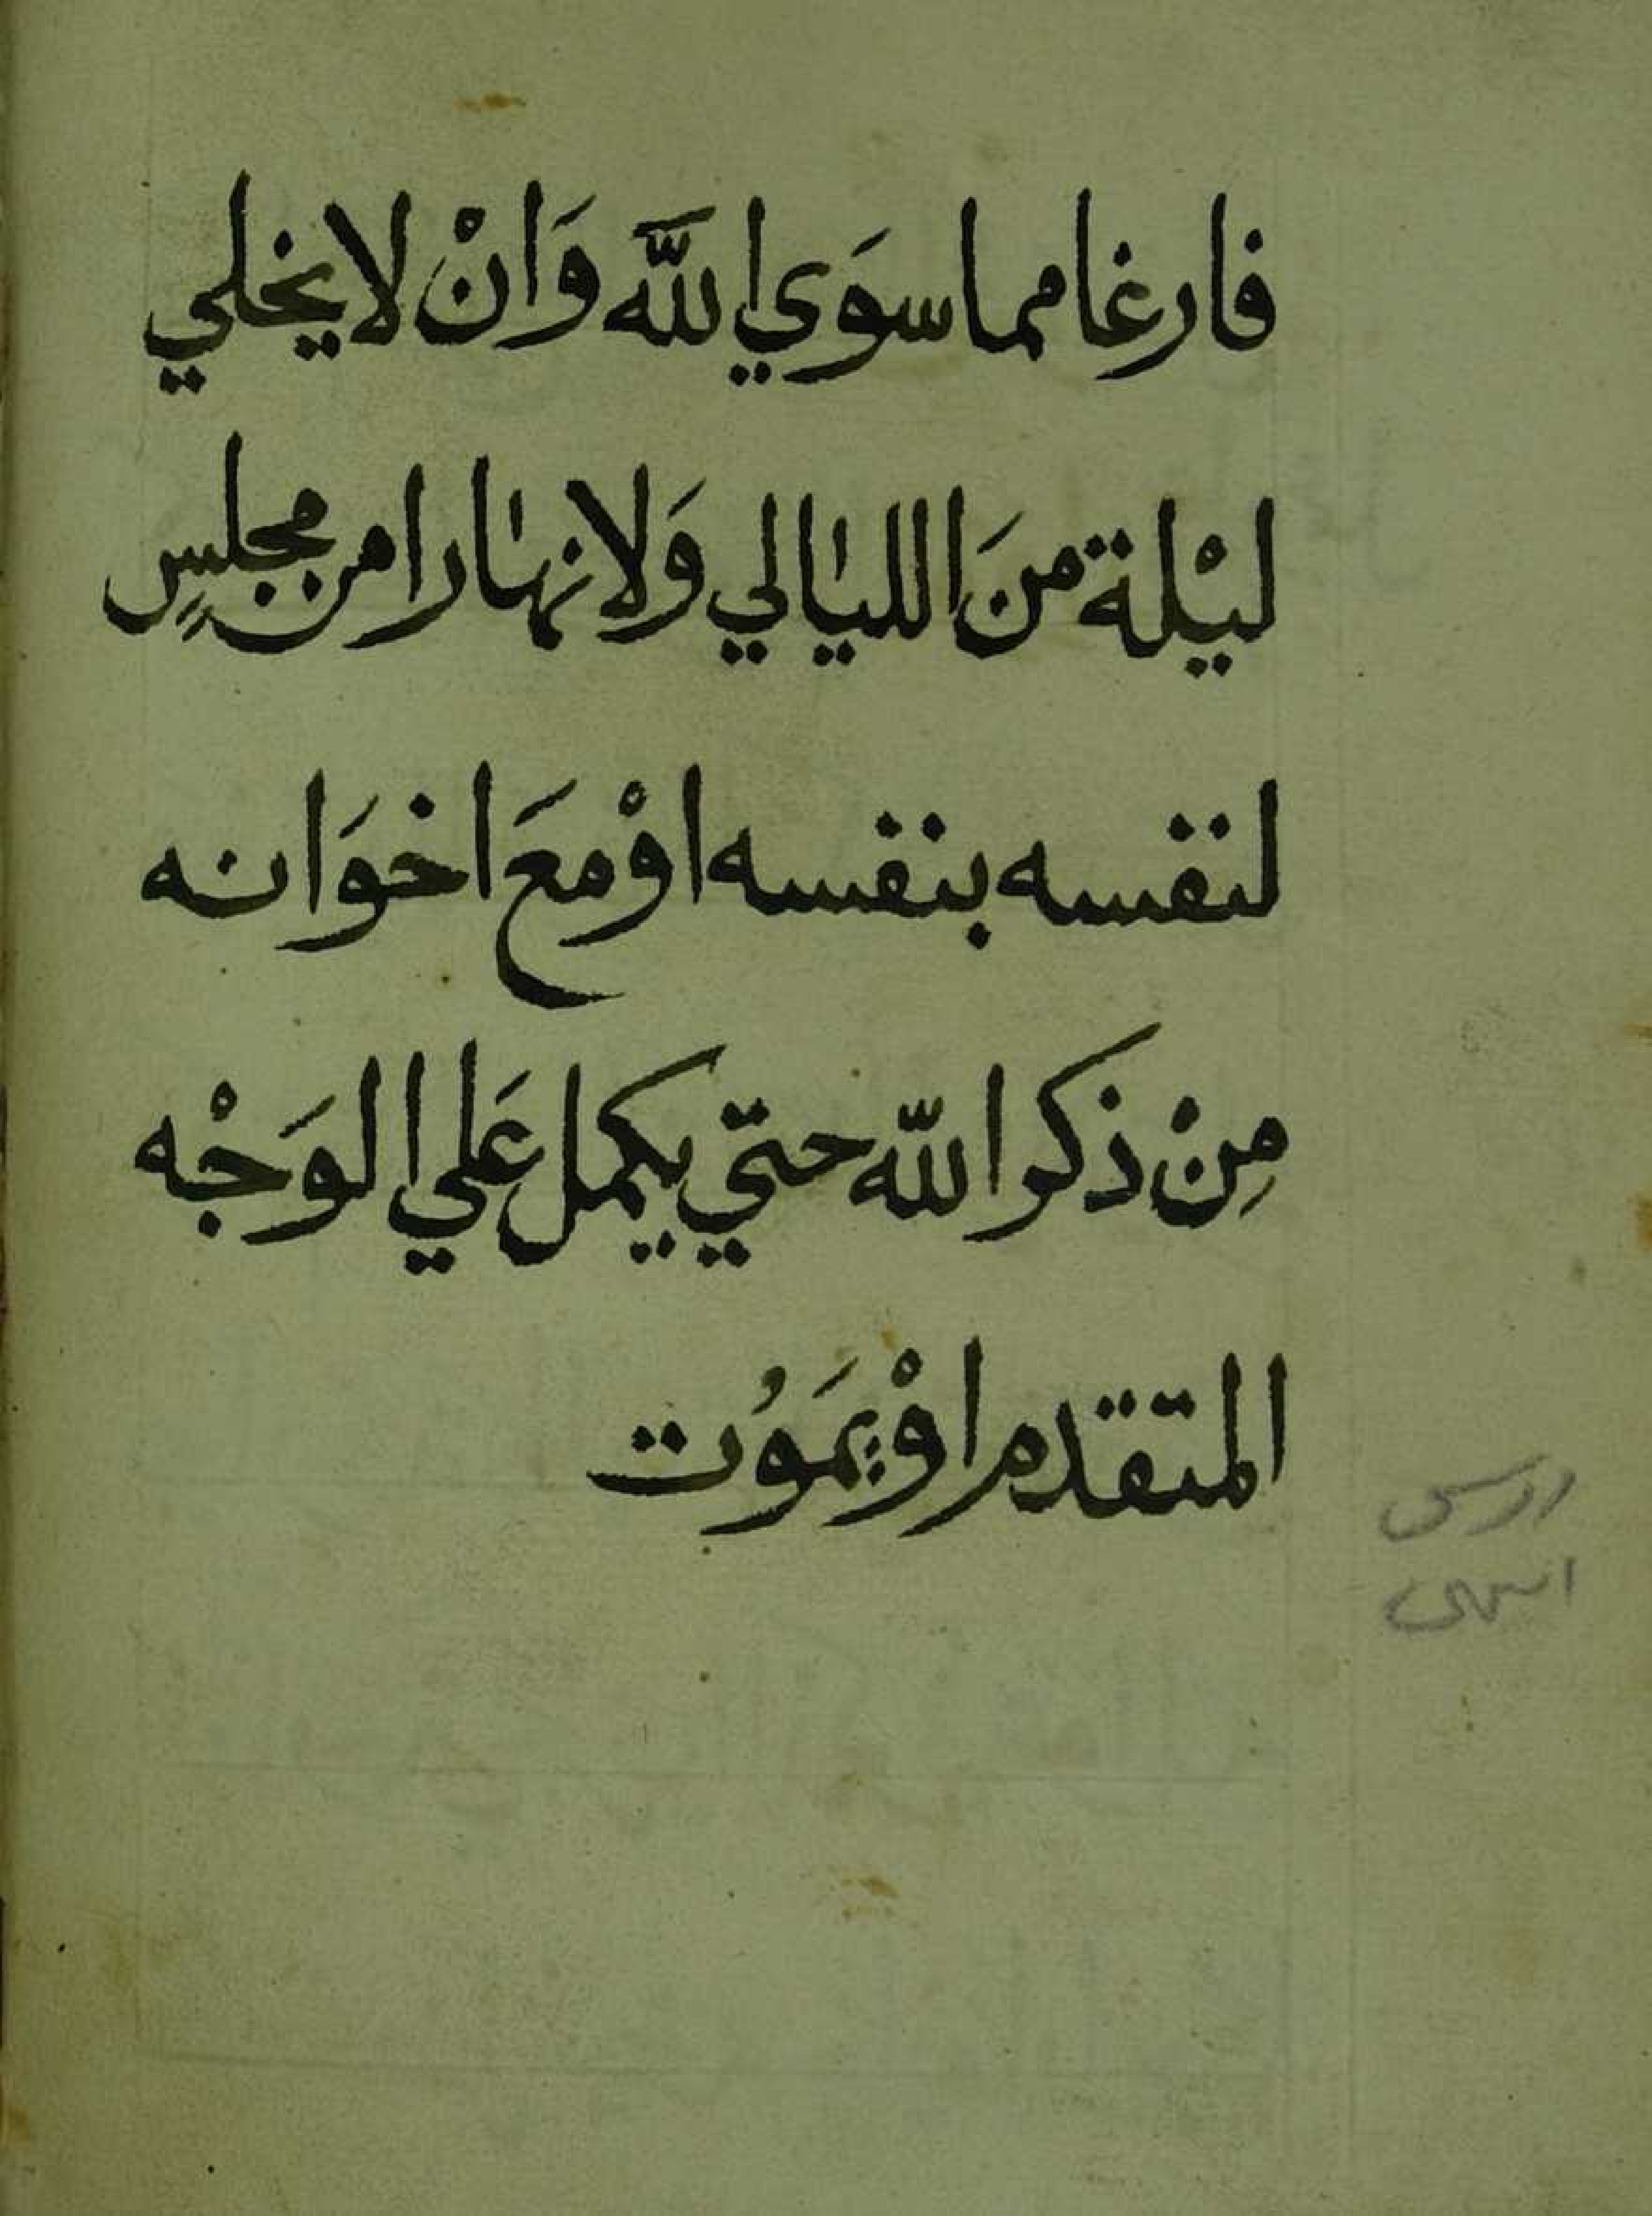 فارغا مما سوَي اللَّه وَانْ لا يخلي
ليْلة منَ الليالي وَلا نهارا من مجلسٍ
لنفسه بنفسه اوْ معَ اخوَانه
مِنْ ذكر اللّه حتي يكمل عَلي الوَجْه
المتقدم اوْ يمَوُت